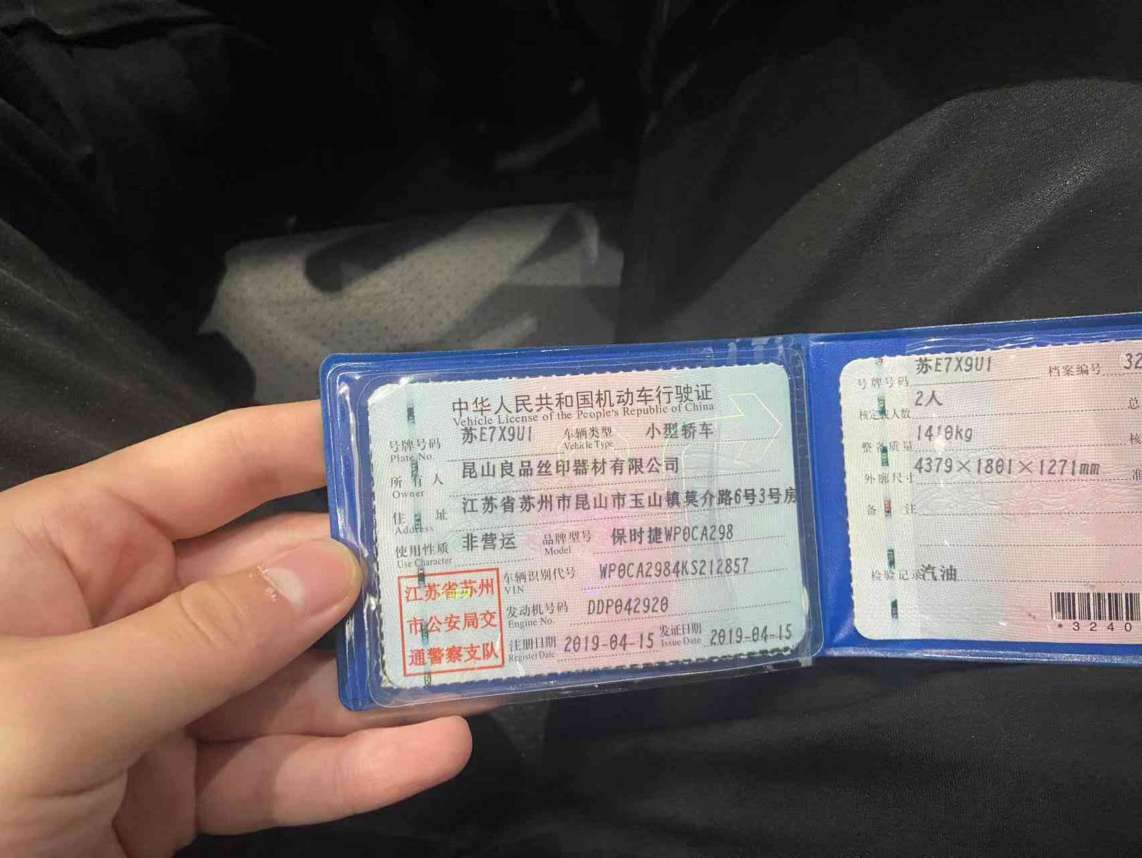 中华人民共和国机动车行驶证
Vehicle License of the People's Republic of China
号牌号码 苏E7X9U1 车辆类型 小型轿车
Plate No. Vehicle Type
所有人 昆山良品丝印器材有限公司
Owner
住址 江苏省苏州市昆山市玉山镇莫介路6号3号房
Address
使用性质 非营运 品牌型号 保时捷WP0CA298
Use Character Model
江苏省苏州
市公安局交
通警察支队
车辆识别代号 WP0CA2984KS212857
VIN
发动机号码 DDP042920
Engine No.
注册日期 2019-04-15 发证日期 2019-04-15
Register Date Issue Date
号牌号码 苏E7X9U1 档案编号 32
核定载人数 2人 总
整备质量 1410kg 核
外廓尺寸 4379×1801×1271mm 准
备注
检验记录 汽油
*3240